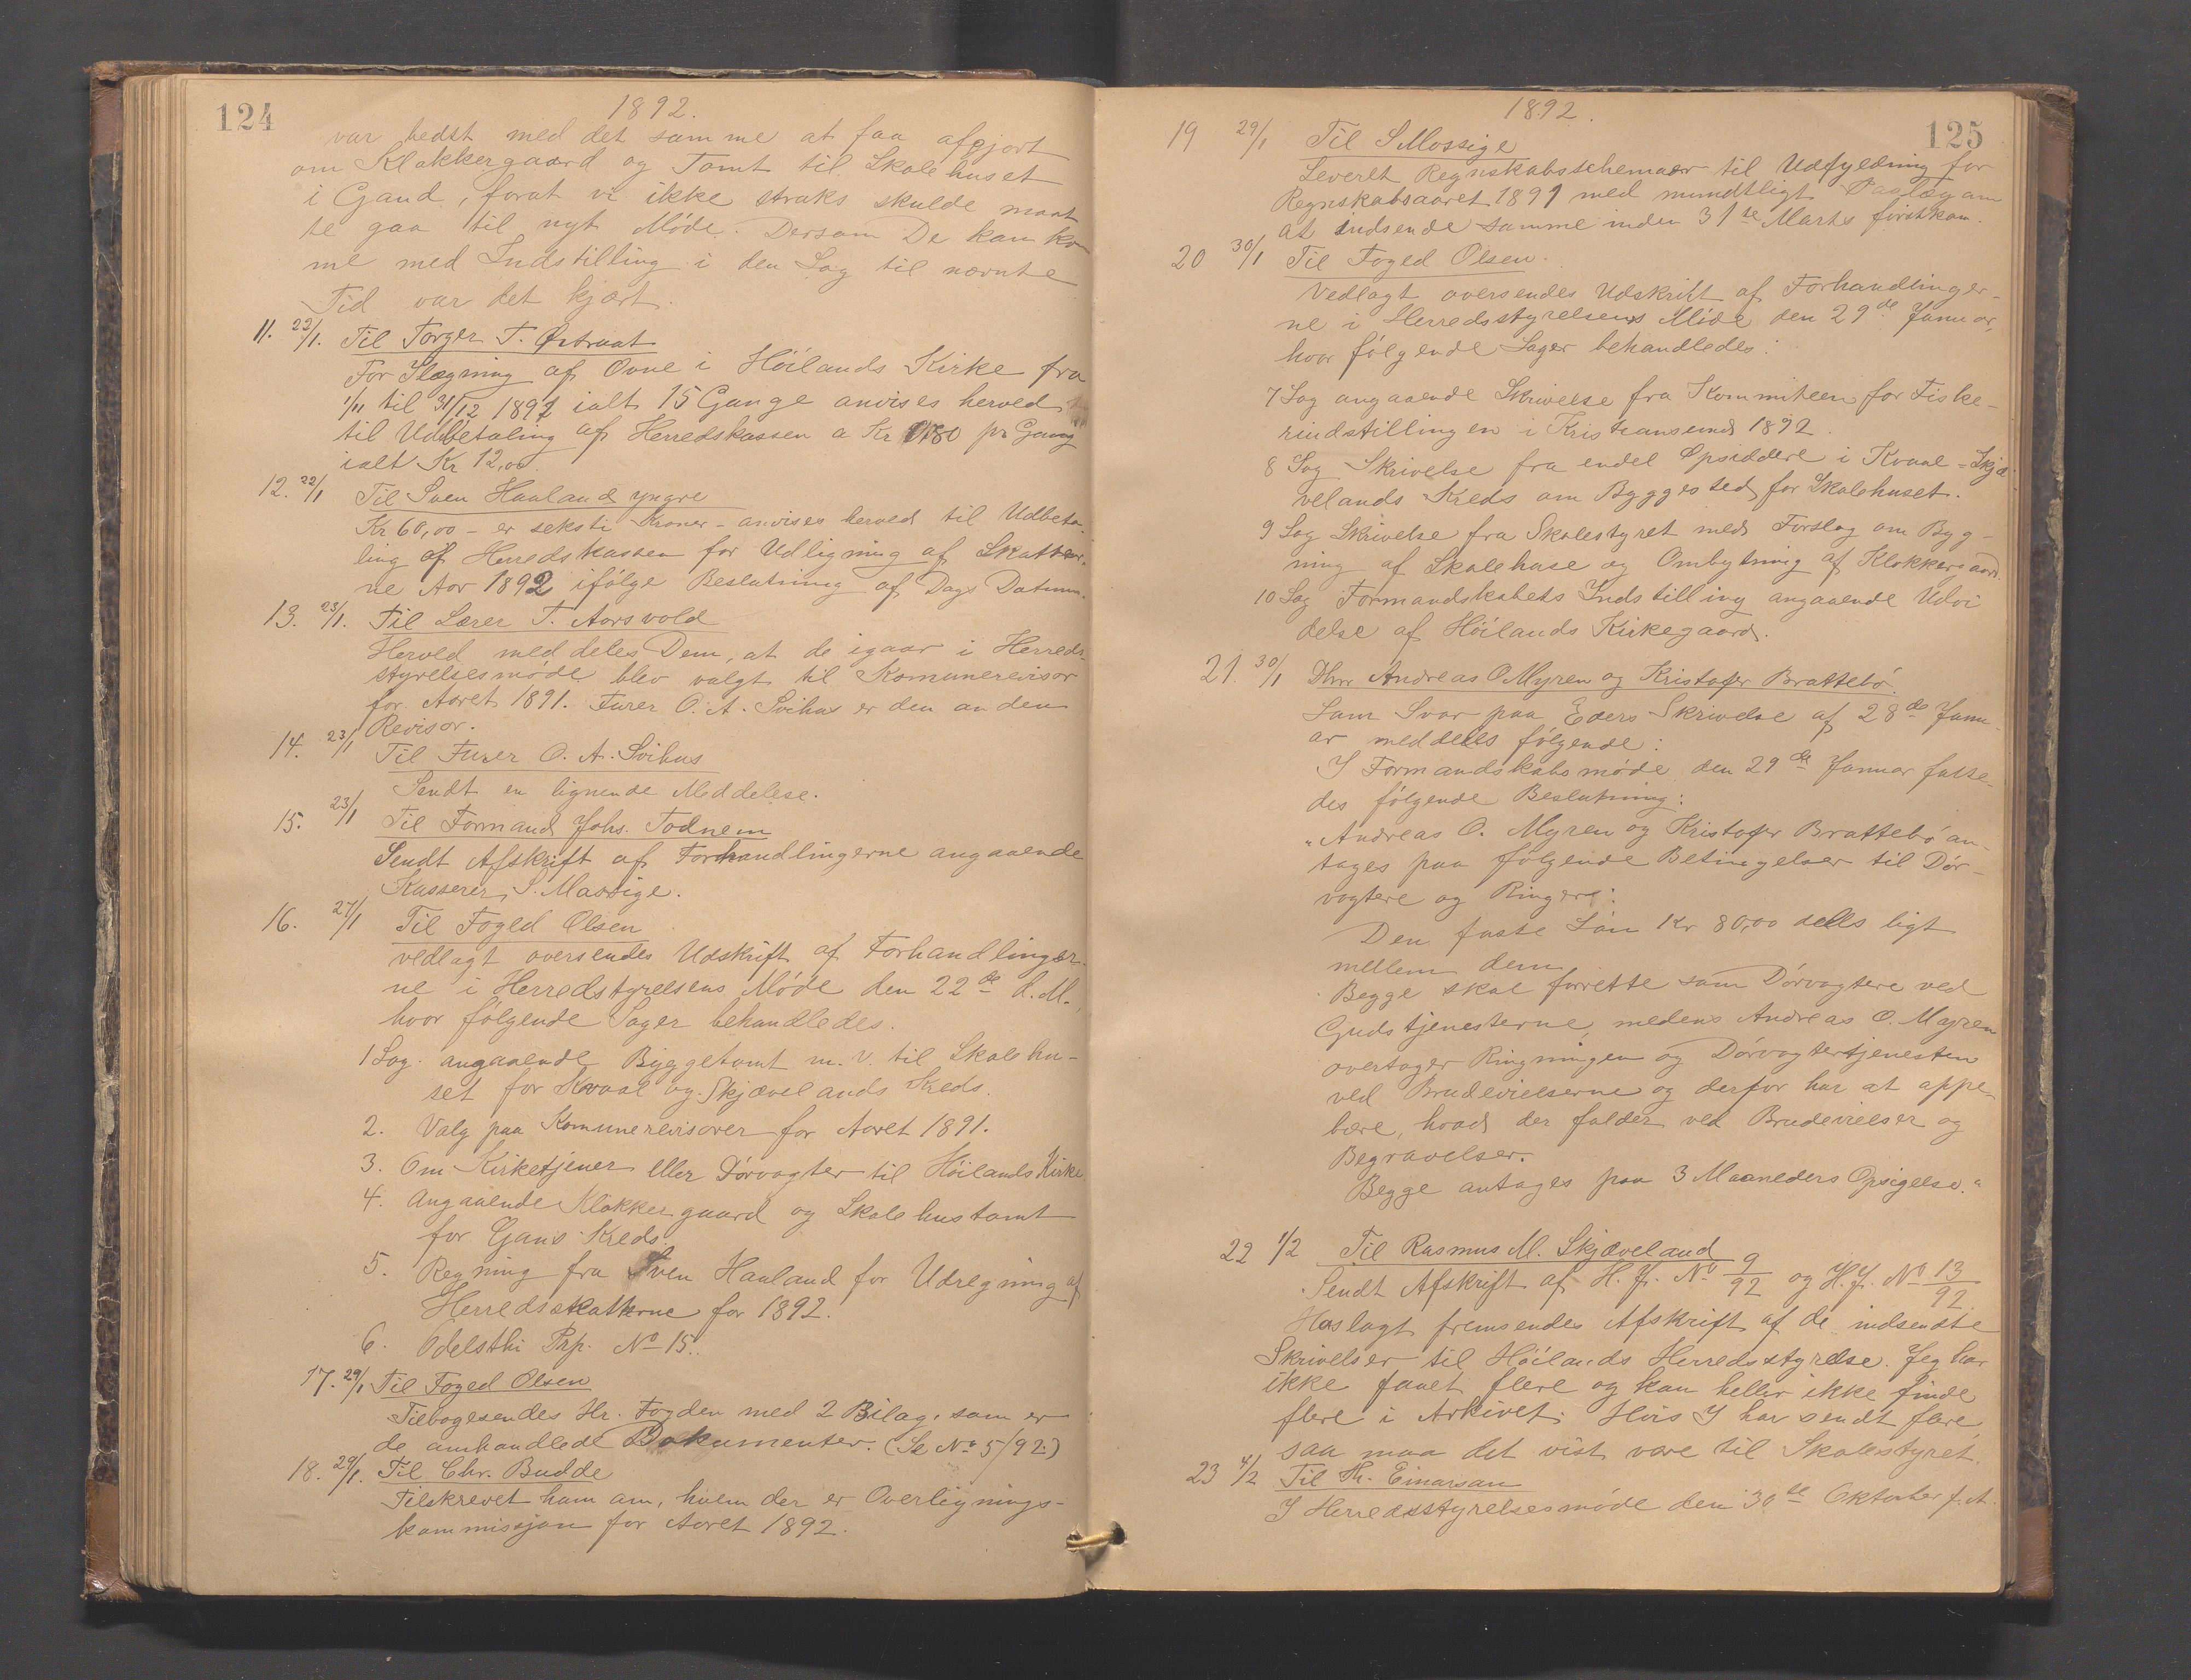 124
1892.
var bedst med det samme at faa afgjort
om Klokkergaard og Tomt til Skolehuset
i Gand, forat vi ikke straks skulde maat
te gaa til nyt Møde. Dersom De kan kom
me med Indstilling i den Sag til nævnte
Tid var det kjært.
11. 22/1. Til Torger T. Østraat
For Ilægning af Ovne i Höilands Kirke fra
1/11 til 31/12 1891 ialt 15 Gange anvises herved
til Udbetaling af Herredskassen a Kr 0,80 pr Gang
ialt Kr 12,00.
12. 22/1 Til Sven Haaland yngre
Kr 60,00 - er seksti Kroner - anvises herved til Udbeta-
ling af Herredskassen for Udligning af Skatter-
ne Aar 1892 ifølge Beslutning af Dags Datum.
13. 23/1. Til Lærer T. Aarsvold
Herved meddeles Dem, at de igaar i Herreds-
styrelsesmøde blev valgt til Komunerevisor
for Aaret 1891. Furer O. A. Svihus er den anden
Revisor.
14. 23/1 Til Furer O. A. Svihus
Sendt en lignende Meddelese.
15. 23/1 Til Formand Johs. Todnem
Sendt Afskrift af Forhandlingerne angaaende
Kasserer S. Mossige.
16. 27/1 Til Foged Olsen
vedlagt oversendes Udskrift af Forhandlinger-
ne i Herredstyrelsens Møde den 22de d. M.,
hvor følgende Sager behandledes.
1 Sag. angaaende Byggetomt m. v. til Skolehu-
set for Kvaal og Skjævelands Kreds.
2. Valg paa Komunerevisorer for Aaret 1891.
3. Om Kirketjener eller Dørvogter til Höilands Kirke
4. Angaaende Klokkergaard og Skolehustomt
for Gans Kreds.
5. Regning fra Sven Haaland for Udregning af
Herredsskatterne for 1892.
6. Odelsthi Prp. No 15..
17. 29/1 Til Foged Olsen
Tilbagesendes Hr. Fogden med 2 Bilag, som er
de omhandlede Dokumenter. (Se No 5/92.)
18. 29/1. Til Chr. Budde
Tilskrevet ham om, hvem der er Overlignings-
kommissjon for Aaret 1892.
1892.
125
19 29/1 Til S Mossige
Leveret Regnskabsschemaer til Udfyldning for
Regnskabsaaret 1891 med mundtligt Paalæg om
at indsende samme inden 31te Marts førstkom.
20 30/1 Til Foged Olsen.
Vedlagt oversendes Udskrift af Forhandlinger-
ne i Herredsstyrelsens Møde den 29de Januar,
hvor følgende Sager behandledes:
7 Sag angaaende Skrivelse fra Kommiteen for Fiske-
riudstillingen i Kristiansund 1892.
8 Sag Skrivelse fra endel Opsiddere i Kvaal - Skjæ
velands Kreds om Byggested for Skolehuset.
9 Sag Skrivelse fra Skolestyret med Forslag om Byg-
ning af Skolehuse og Ombytning af Klokkergaard.
10 Sag Formandskabets Indstilling angaaende Udvi
delse af Höilands Kirkegaard.
21. 30/1 Dhrr Andreas O Myren og Kristofer Brattebø.
Som Svar paa Eders Skrivelse af 28de Janu
ar meddeles følgende:
I Formandskabsmøde den 29de Januar fatte-
des følgende Beslutning:
"Andreas O. Myren og Kristofer Brattebø an-
tages paa følgende Betingelser til Dør-
vogtere og Ringere:
Den faste Løn Kr 80,00 deles ligt
mellem dem.
Begge skal forrette som Dørvogtere ved
Gudstjenesterne, medens Andreas O. Myren
overtager Ringningen og Dørvogtertjenesten
ved Brudevielserne og derfor har at oppe-
bære, hvad der falder ved Brudevielser og
Begravelser.
Begge antages paa 3 Maaneders Opsigelse."
22 1/2 Til Rasmus M. Skjæveland
Sendt Afskrift af H. J. No 9/92 og H. J. No 13/92.
Hoslagt fremsendes Afskrift af de indsendte
Skrivelser til Höilands Herredsstyrelse. Jeg har
ikke faaet flere og kan heller ikke finde
flere i Arkivet. Hvis I har sendt flere,
saa maa det vist være til Skolestyret.
23 4/2 Til Th. Einarsan
I Herredsstyrelsesmøde den 30te Oktober f. A.